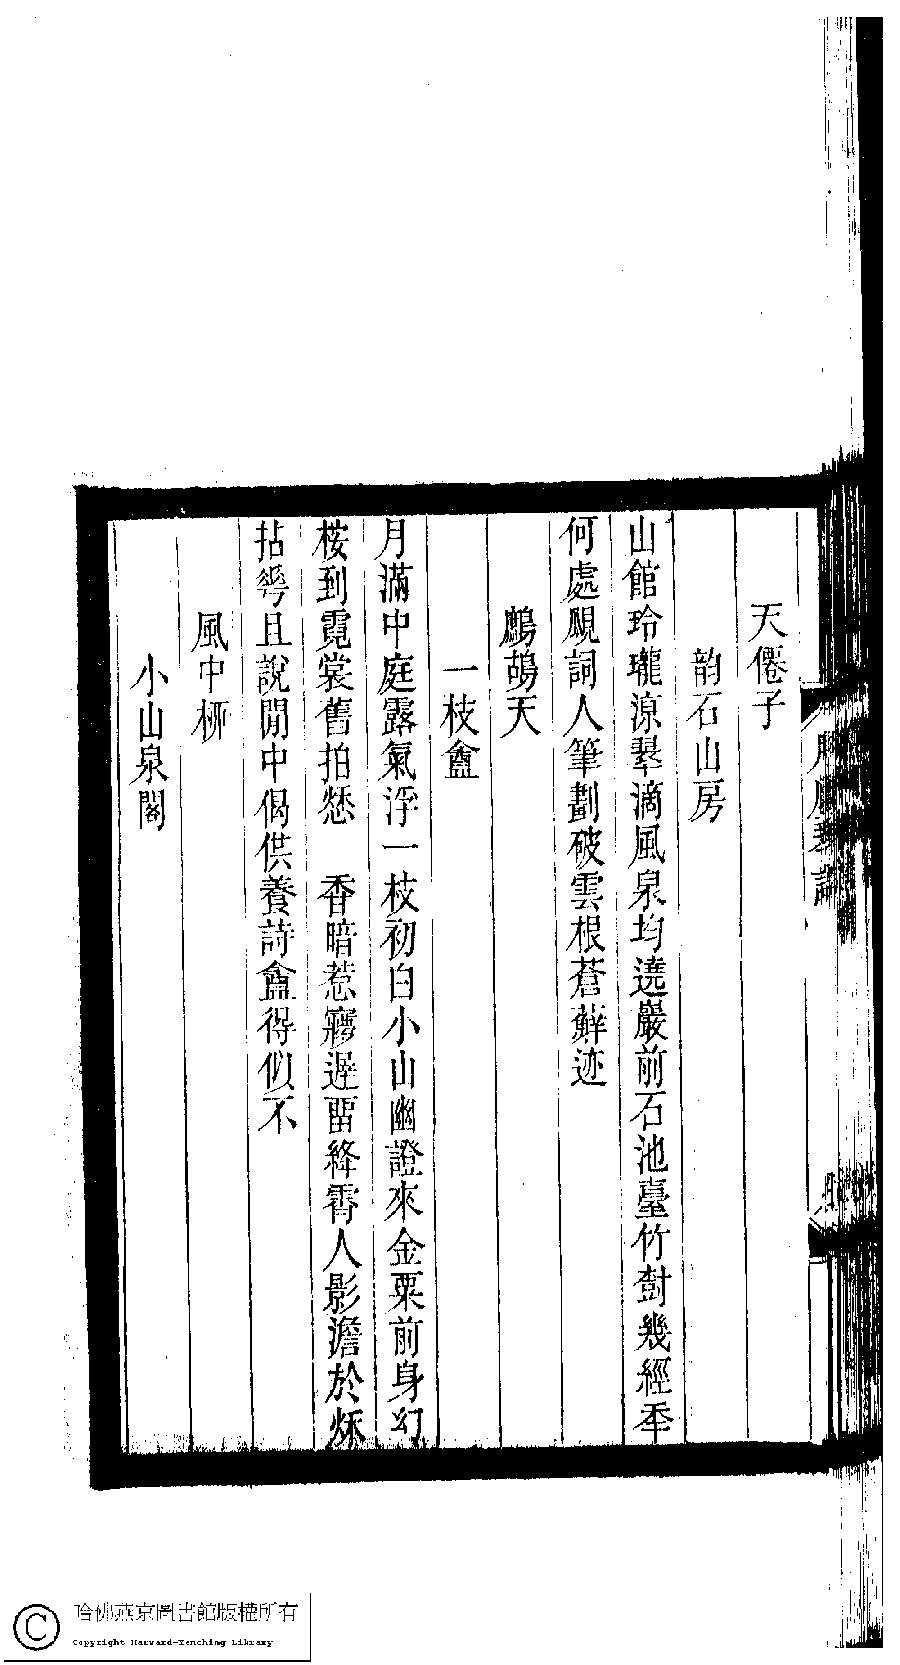 天僊子
韵石山房
山館玲瓏涼翠滴風泉均遶巖前石池臺竹樹幾經秊
何處覷詞人筆劃破雲根蒼蘚迹
鷓鴣天
一枝盦
月滿中庭露氣浮一枝初白小山幽證來金粟前身幻
桉到霓裳舊拍愁　香暗惹寱遲畱絳霄人影澹於秌
拈雩且說閒中偈供養詩盦得似不
風中桺
小山泉閣
哈佛燕京圖書館版權所有
Copyright Harvard-Yenching Library